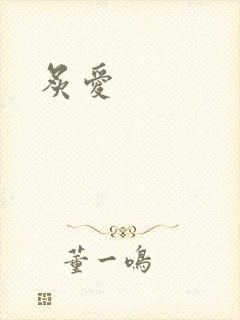 炙愛
董一鳴